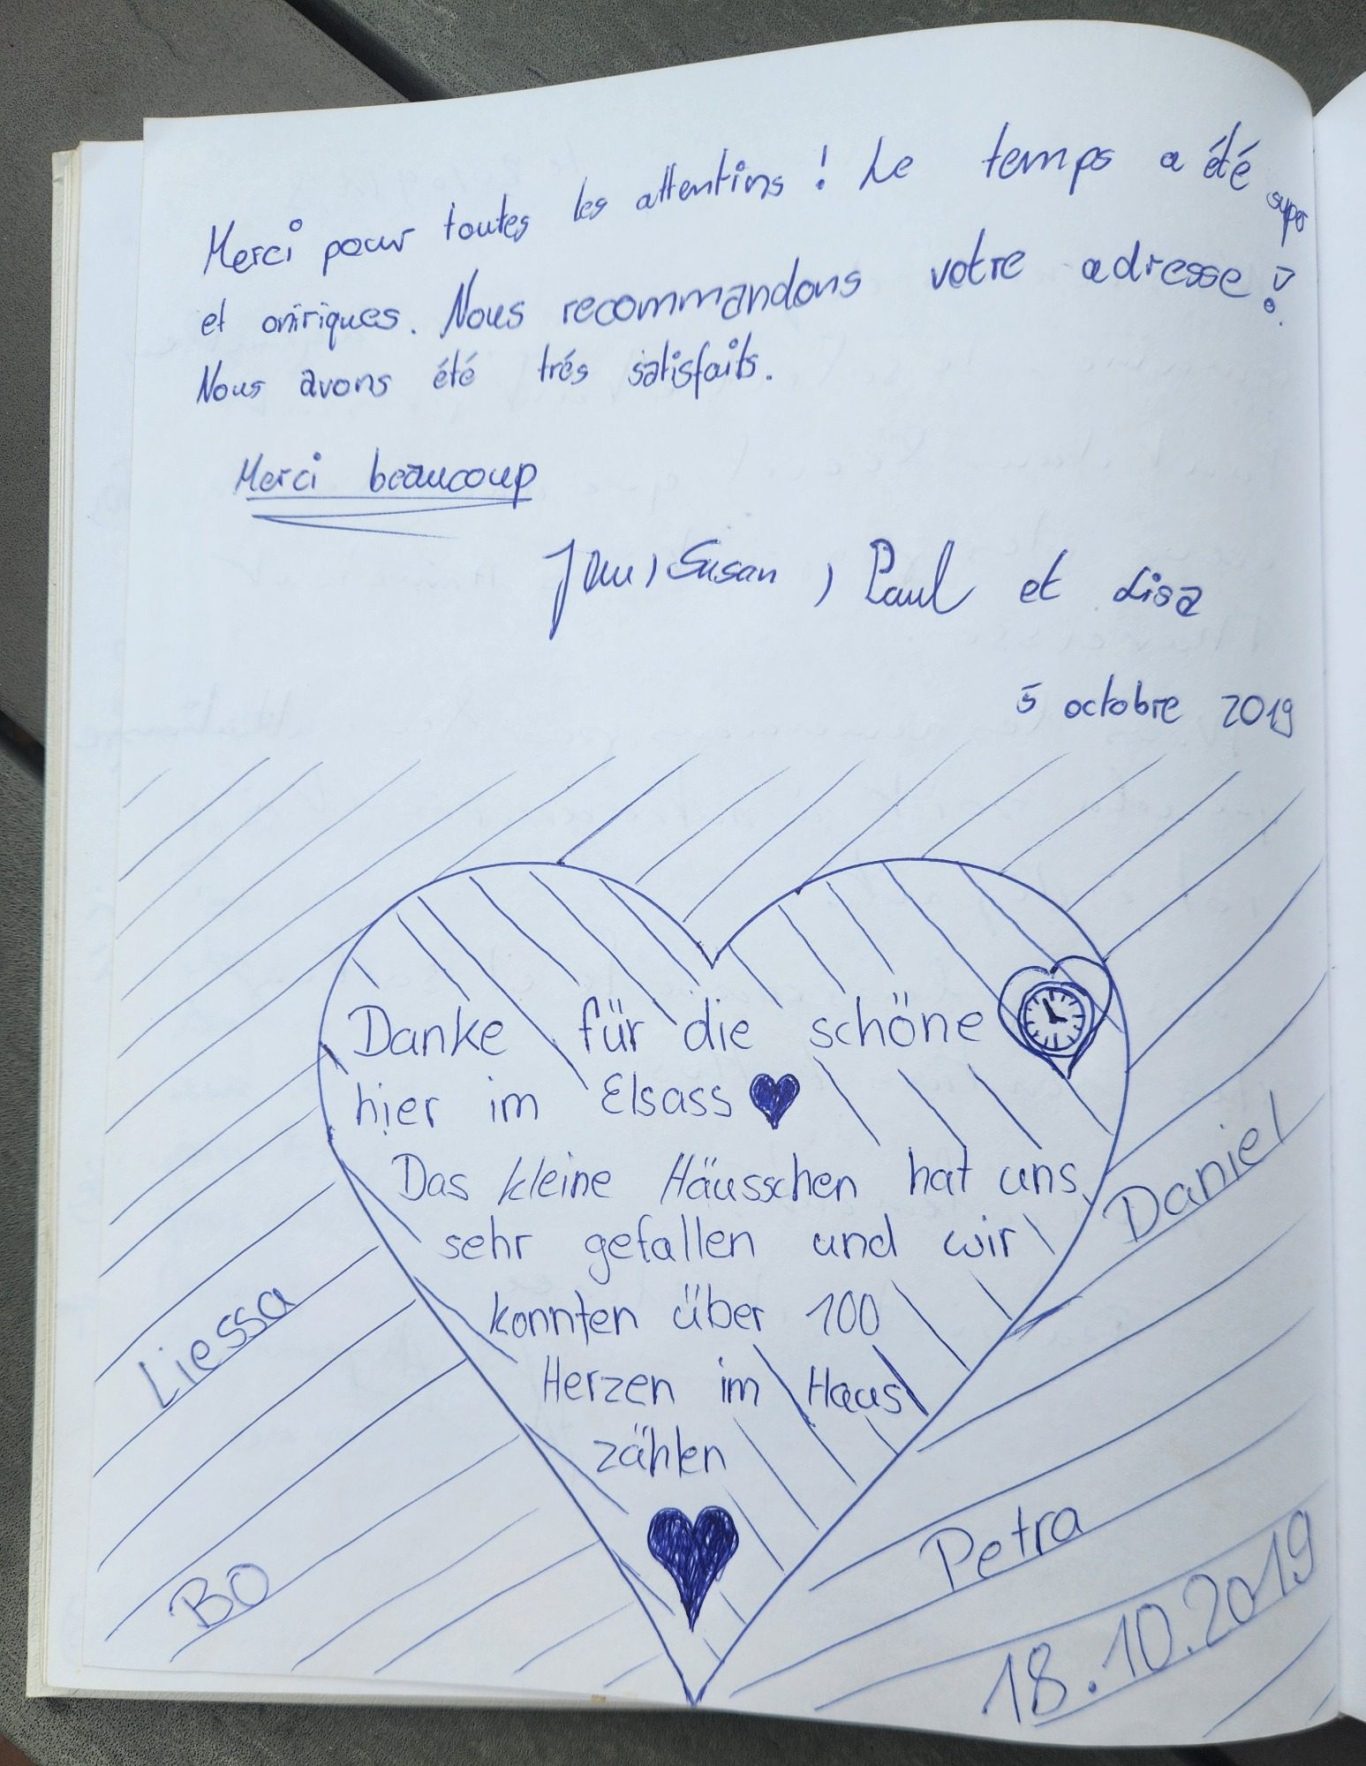 Merci pour toutes les attentins ! Le temps a été super
et oniriques. Nous recommandons votre adresse !
Nous avons été trés satisfaits.
Merci beaucoup
Susan, Paul et Lisa
5 octobre 2019
Danke für die schöne
hier im Elsass
Das kleine Häusschen hat uns
sehr gefallen und wir
konnten über 100
Herzen im Haus
zählen
Daniel
Liessa
Petra
BO
18.10.2019